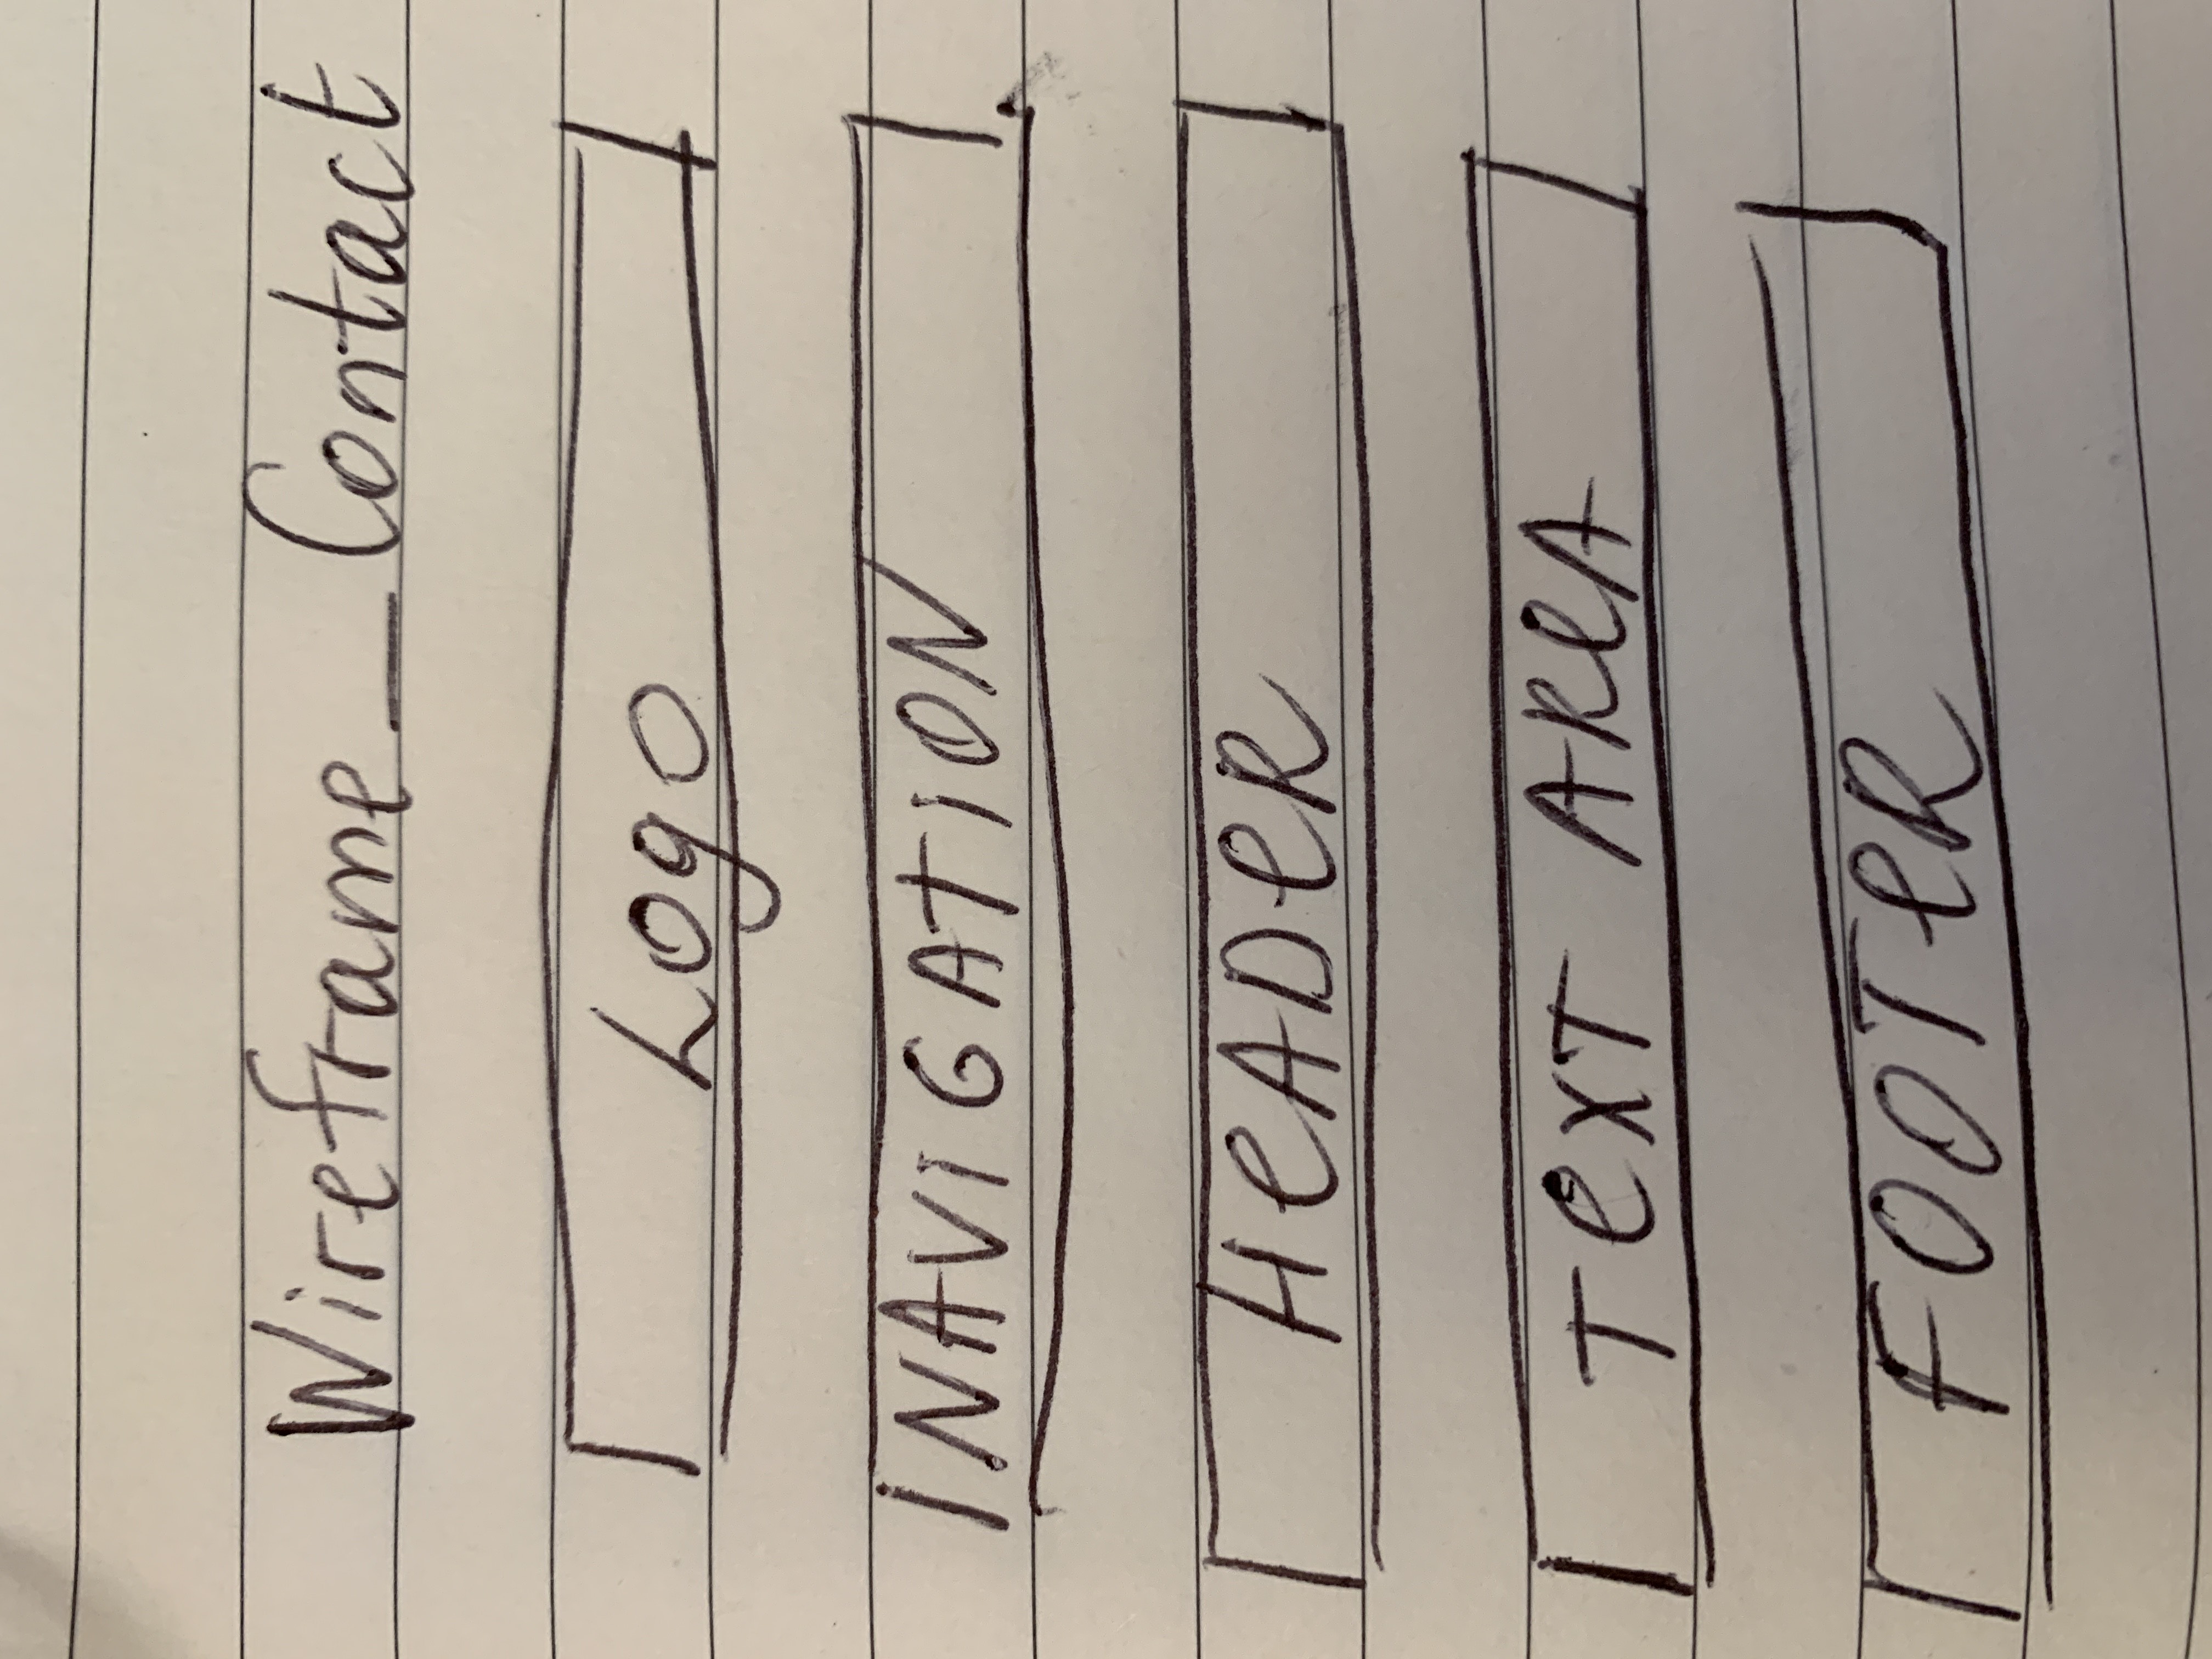 Wireframe_Contact
Logo
NAViGATiON
HeADeR
TeXT AReA
FOOTeR